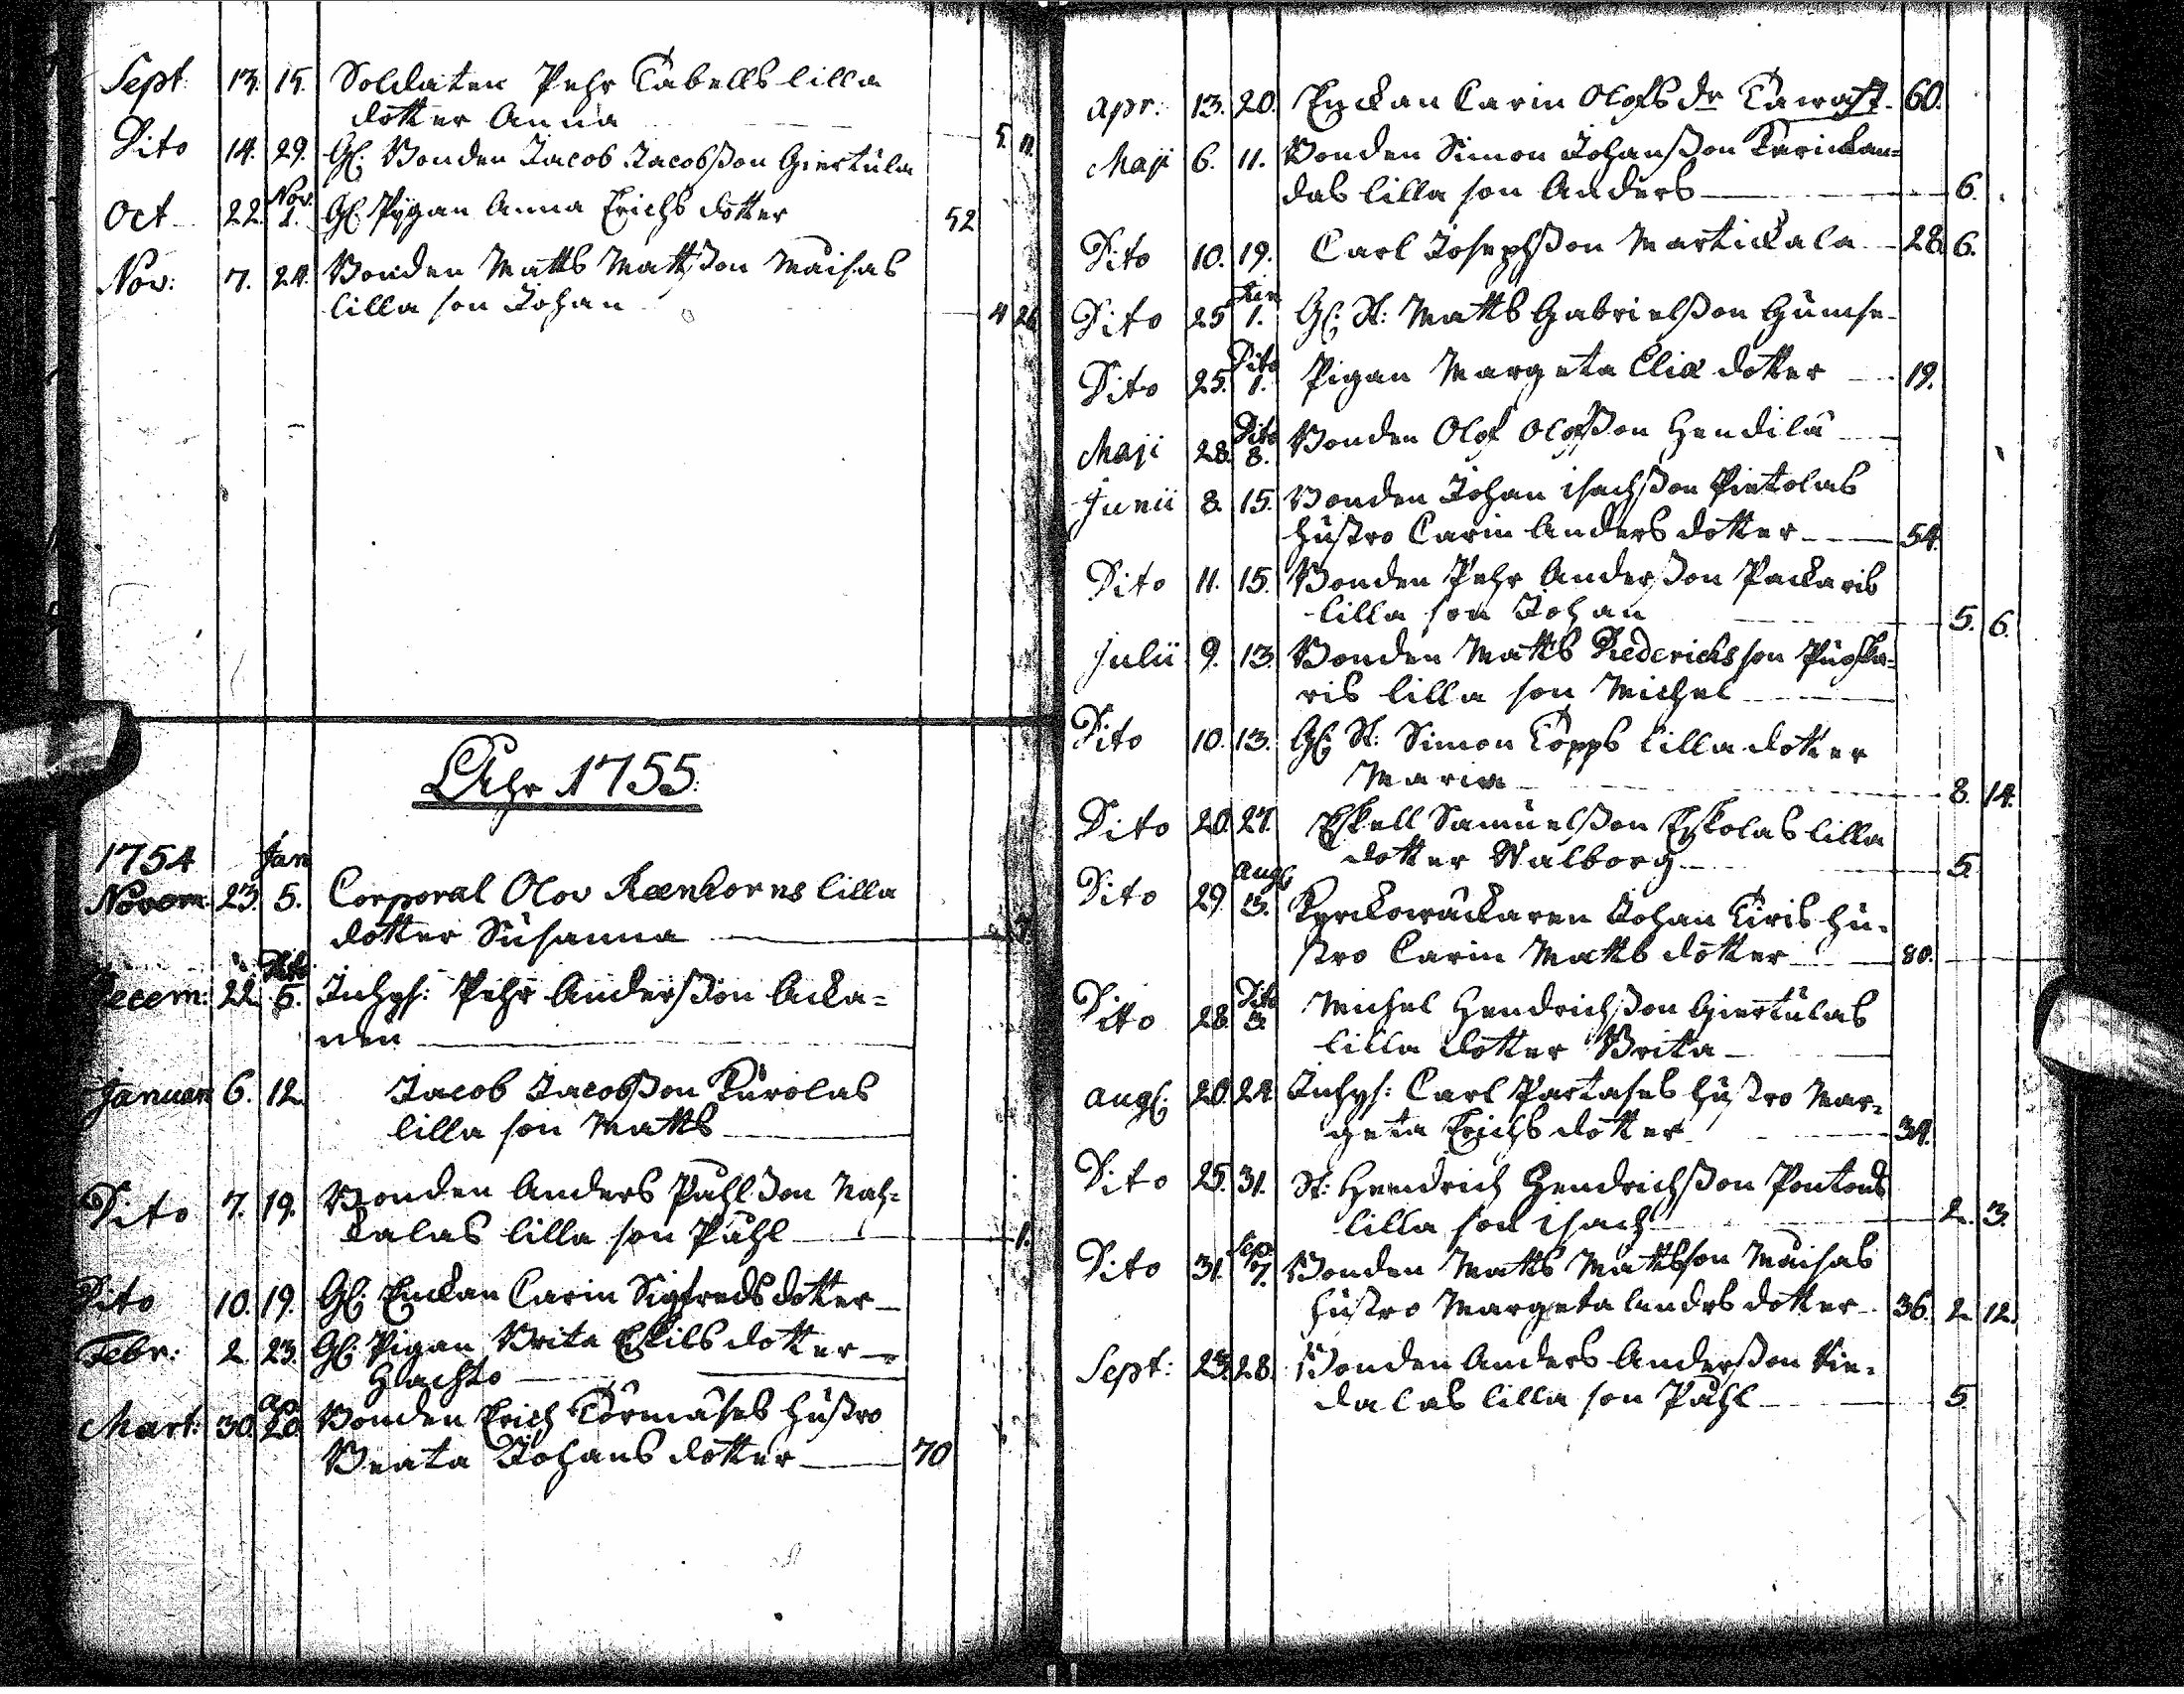 Sept: 13. 15. Soldaten Pehr Tabells lilla
dotter Anna 5. 11.
Dito 14. 29. Gl: Bonden Jacob Jacobsson Giertula
Oct 22. Nov. 1. Gl: Pygan Anna Erichs dotter 52
Nov: 7. 24. Bonden Matts Mattsson Maisas
lilla son Johan 4 26
Åhr 1755.
1754 Jan
Novem: 23. 5. Corporal Olov Reenhorns lilla
dotter Susanna 7.
Decem: 22. Dito 5. Inhys: Pehr Andersson Acka=
nen
Januari 6. 12. Jacob Jacobsson Kurolas
lilla son Matts
Dito 7. 19. Bonden Anders Påhlsson Nah=
kalas lilla son Påhl 1.
Dito 10. 19. Gl: Enckan Carin Sigfreds dotter
Febr: 2. 23. Gl: Pigan Brita Eskils dotter
Hachto
Mart: 30. Ap 20. Bonden Erich Törmäses hustro
Beata Johans dotter 70
Apr: 13. 20. Enckan Carin Olofs dr Tawast 60.
Maji 6. 11. Bonden Simon Johansson
das lilla son Anders 6.
Dito 10. 19. Carl Josephsson Martickala 28. 6.
Dito 25 Jun 1. Gl: St: Matts Gabrielsson Humse
Dito 25. Dito 1. Pigan Margeta Eliæ dotter 19.
Maji 28. Dito 8. Bonden Olof Olofsson Hendilä
Junii 8. 15. Bonden Johan Isachsson Pietolas
hustro Carin Anders dotter 54.
Dito 11. 15. Bonden Pehr Andersson Packaris
lilla son Johan 5. 6.
Julii 9. 13. Bonden Matts Diedrichsson
ris lilla son Michel
Dito 10. 13. Gl: St: Simon Topps lilla dotter
Maria 8. 14.
Dito 20. 27. Eskell Samuelsson Eskolas lilla
dotter Walborg 5.
Dito 29. Aug: 3. Kyrckowäckaren Johan Kiris hu=
stro Carin Matts dotter 80.
Dito 28. Dito 3. Michel Hendrichsson Giertulas
lilla dotter Brita
Aug: 20. 24. Inhys: Carl Partases hustro Mar=
geta Erichs dotter 34.
Dito 25. 31. St: Hendrich Hendrichsson Pontons
lilla son Isach 2. 3.
Dito 31. Sep 7. Bonden Matts Mattsson Maisas
hustro Margeta Anders dotter 36. 2. 12.
Sept: 23. 28. Bonden Anders Andersson Vie=
dalas lilla son Påhl 5